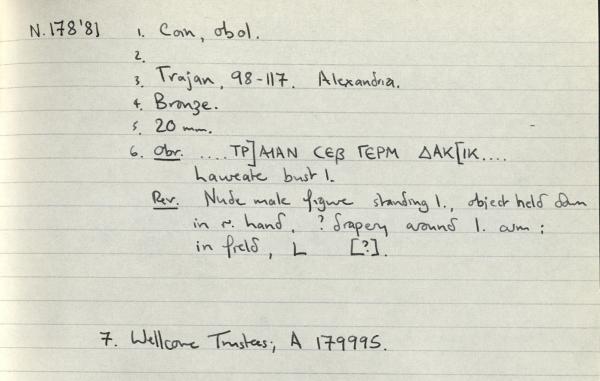 N.178'81 1. Coin, obol.
2.
3. Trajan, 98-117. Alexandria.
4. Bronze.
5. 20 mm.
6. Obv. ....ΤΡ]ΑΙΑΝ CΕβ ΓΕΡΜ ΔΑΚ[ΙΚ....
Laureate bust l.
Rev. Nude male figure standing l., object held down
in r. hand, ? drapery around l. arm;
in field, L [?].
7. Wellcome Trustees; A 179995.